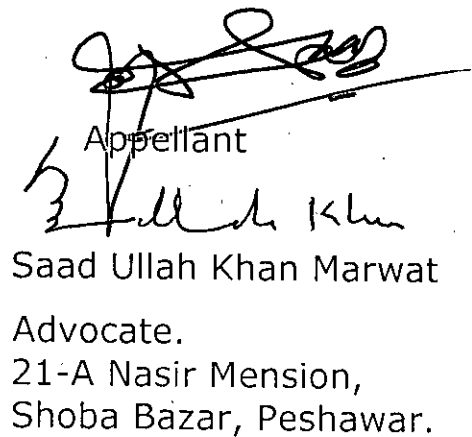 Appellant
Khan
Saad Ullah Khan Marwat
Advocate.
21-A Nasir Mension,
Shoba Bazar, Peshawar.